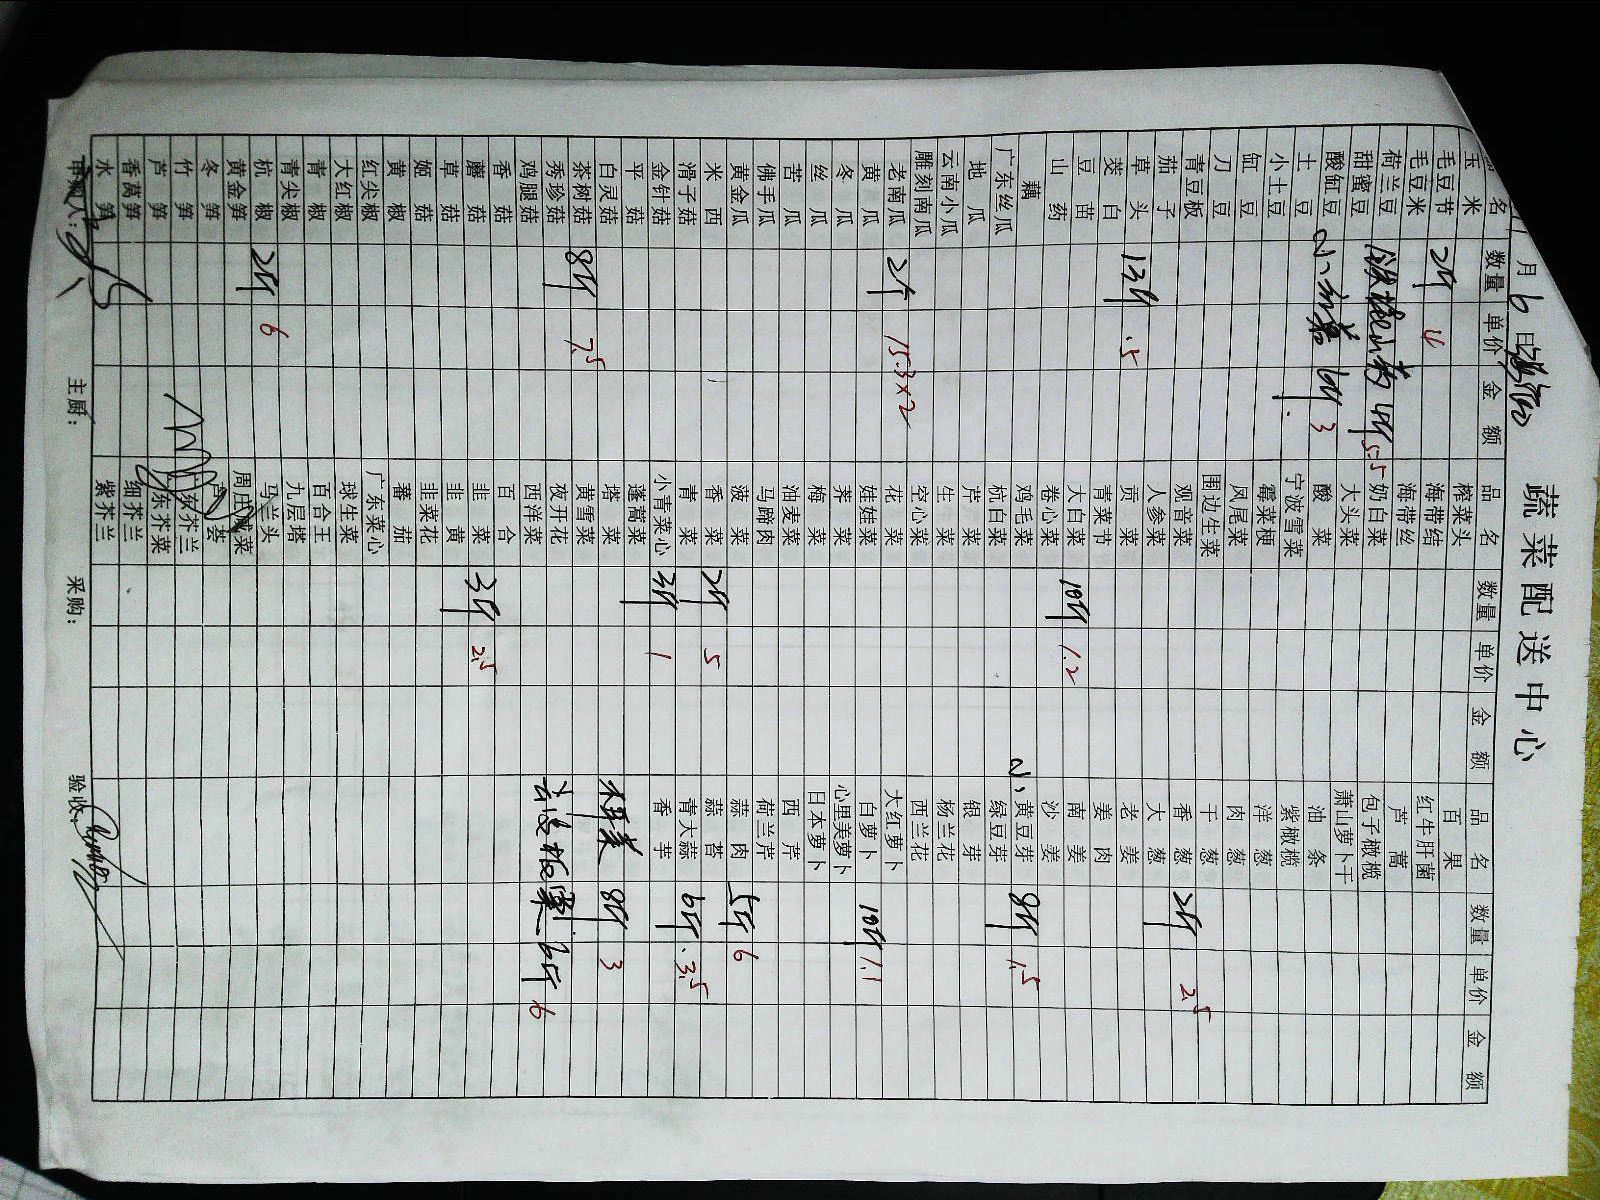 蔬菜配送中心
月 6 日
名 数量 单价 金额 品名 数量 单价 金额 品名 数量 单价 金额
玉米 榨菜头 百果
毛豆节 2斤 4 海带结 红牛肝菌
毛豆米 海带丝 芦蒿
荷兰豆 铁棍山药 4斤 5.5 奶白菜 包子橄榄
甜蜜豆 大头菜 萧山萝卜干
酸缸豆 小红薯 6斤 3 酸菜 油条
土豆 宁波雪菜 紫橄榄
小土豆 霉菜梗 洋葱
缸豆 凤尾菜 肉葱
刀豆 围边生菜 干葱
青豆板 观音菜 香葱 2斤 2.5
茄子 人参菜 大葱
草头 13斤 .5 贡菜 老姜
茭白 青菜节 姜肉
豆苗 大白菜 10斤 1.2 南姜
山药 卷心菜 沙姜
藕 鸡毛菜 小黄豆芽 8斤 1.5
广东丝瓜 杭白菜 绿豆芽
地瓜 芹菜 银芽
云南小瓜 生菜 杨兰花
雕刻南瓜 空心菜 西兰花
老南瓜 2个 15.3×2 花菜 大红萝卜
黄瓜 娃娃菜 白萝卜 10斤 1.1
冬瓜 荠菜 心里美萝卜
丝瓜 梅菜 日本萝卜
苦瓜 油麦菜 西芹
佛手瓜 马蹄肉 荷兰芹
黄金瓜 菠菜 蒜肉 5斤 6
米西 香菜 2斤 5 蒜苔
滑子菇 青菜 青大蒜 6斤 3.5
金针菇 小青菜心 3斤 1 香芋
平菇 蓬蒿菜
白灵菇 塔菜 8斤 3
茶树菇 8斤 7.5 黄雪菜
秀珍菇 夜开花 板栗 6斤 6
鸡腿菇 西洋菜
香菇 百合
蘑菇 韭菜 3斤 2.5
草菇 韭黄
姬菇 韭菜花
黄椒 蕃茄
红尖椒 广东菜心
大红椒 球生菜
青椒 百合王
青尖椒 九层塔
杭椒 2斤 6 马兰头
黄金笋 周庄咸菜
冬笋 芦荟
竹笋 广东芥兰
芦笋 广东芥菜
香莴笋 细芥兰
水笋 紫芥兰
申购人: 主厨: 采购: 验收: